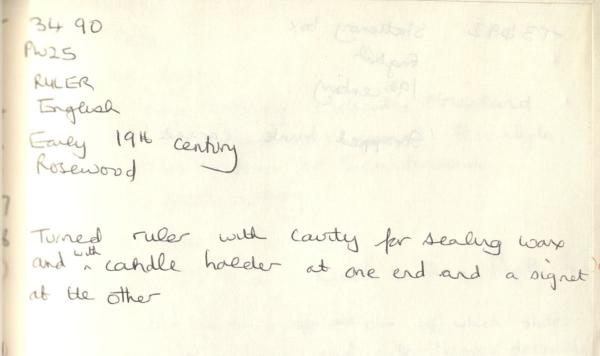 34 90
PW25
RULER
English
Early 19th century
Rosewood
Turned ruler with cavity for sealing wax
and with candle holder at one end and a signet
at the other